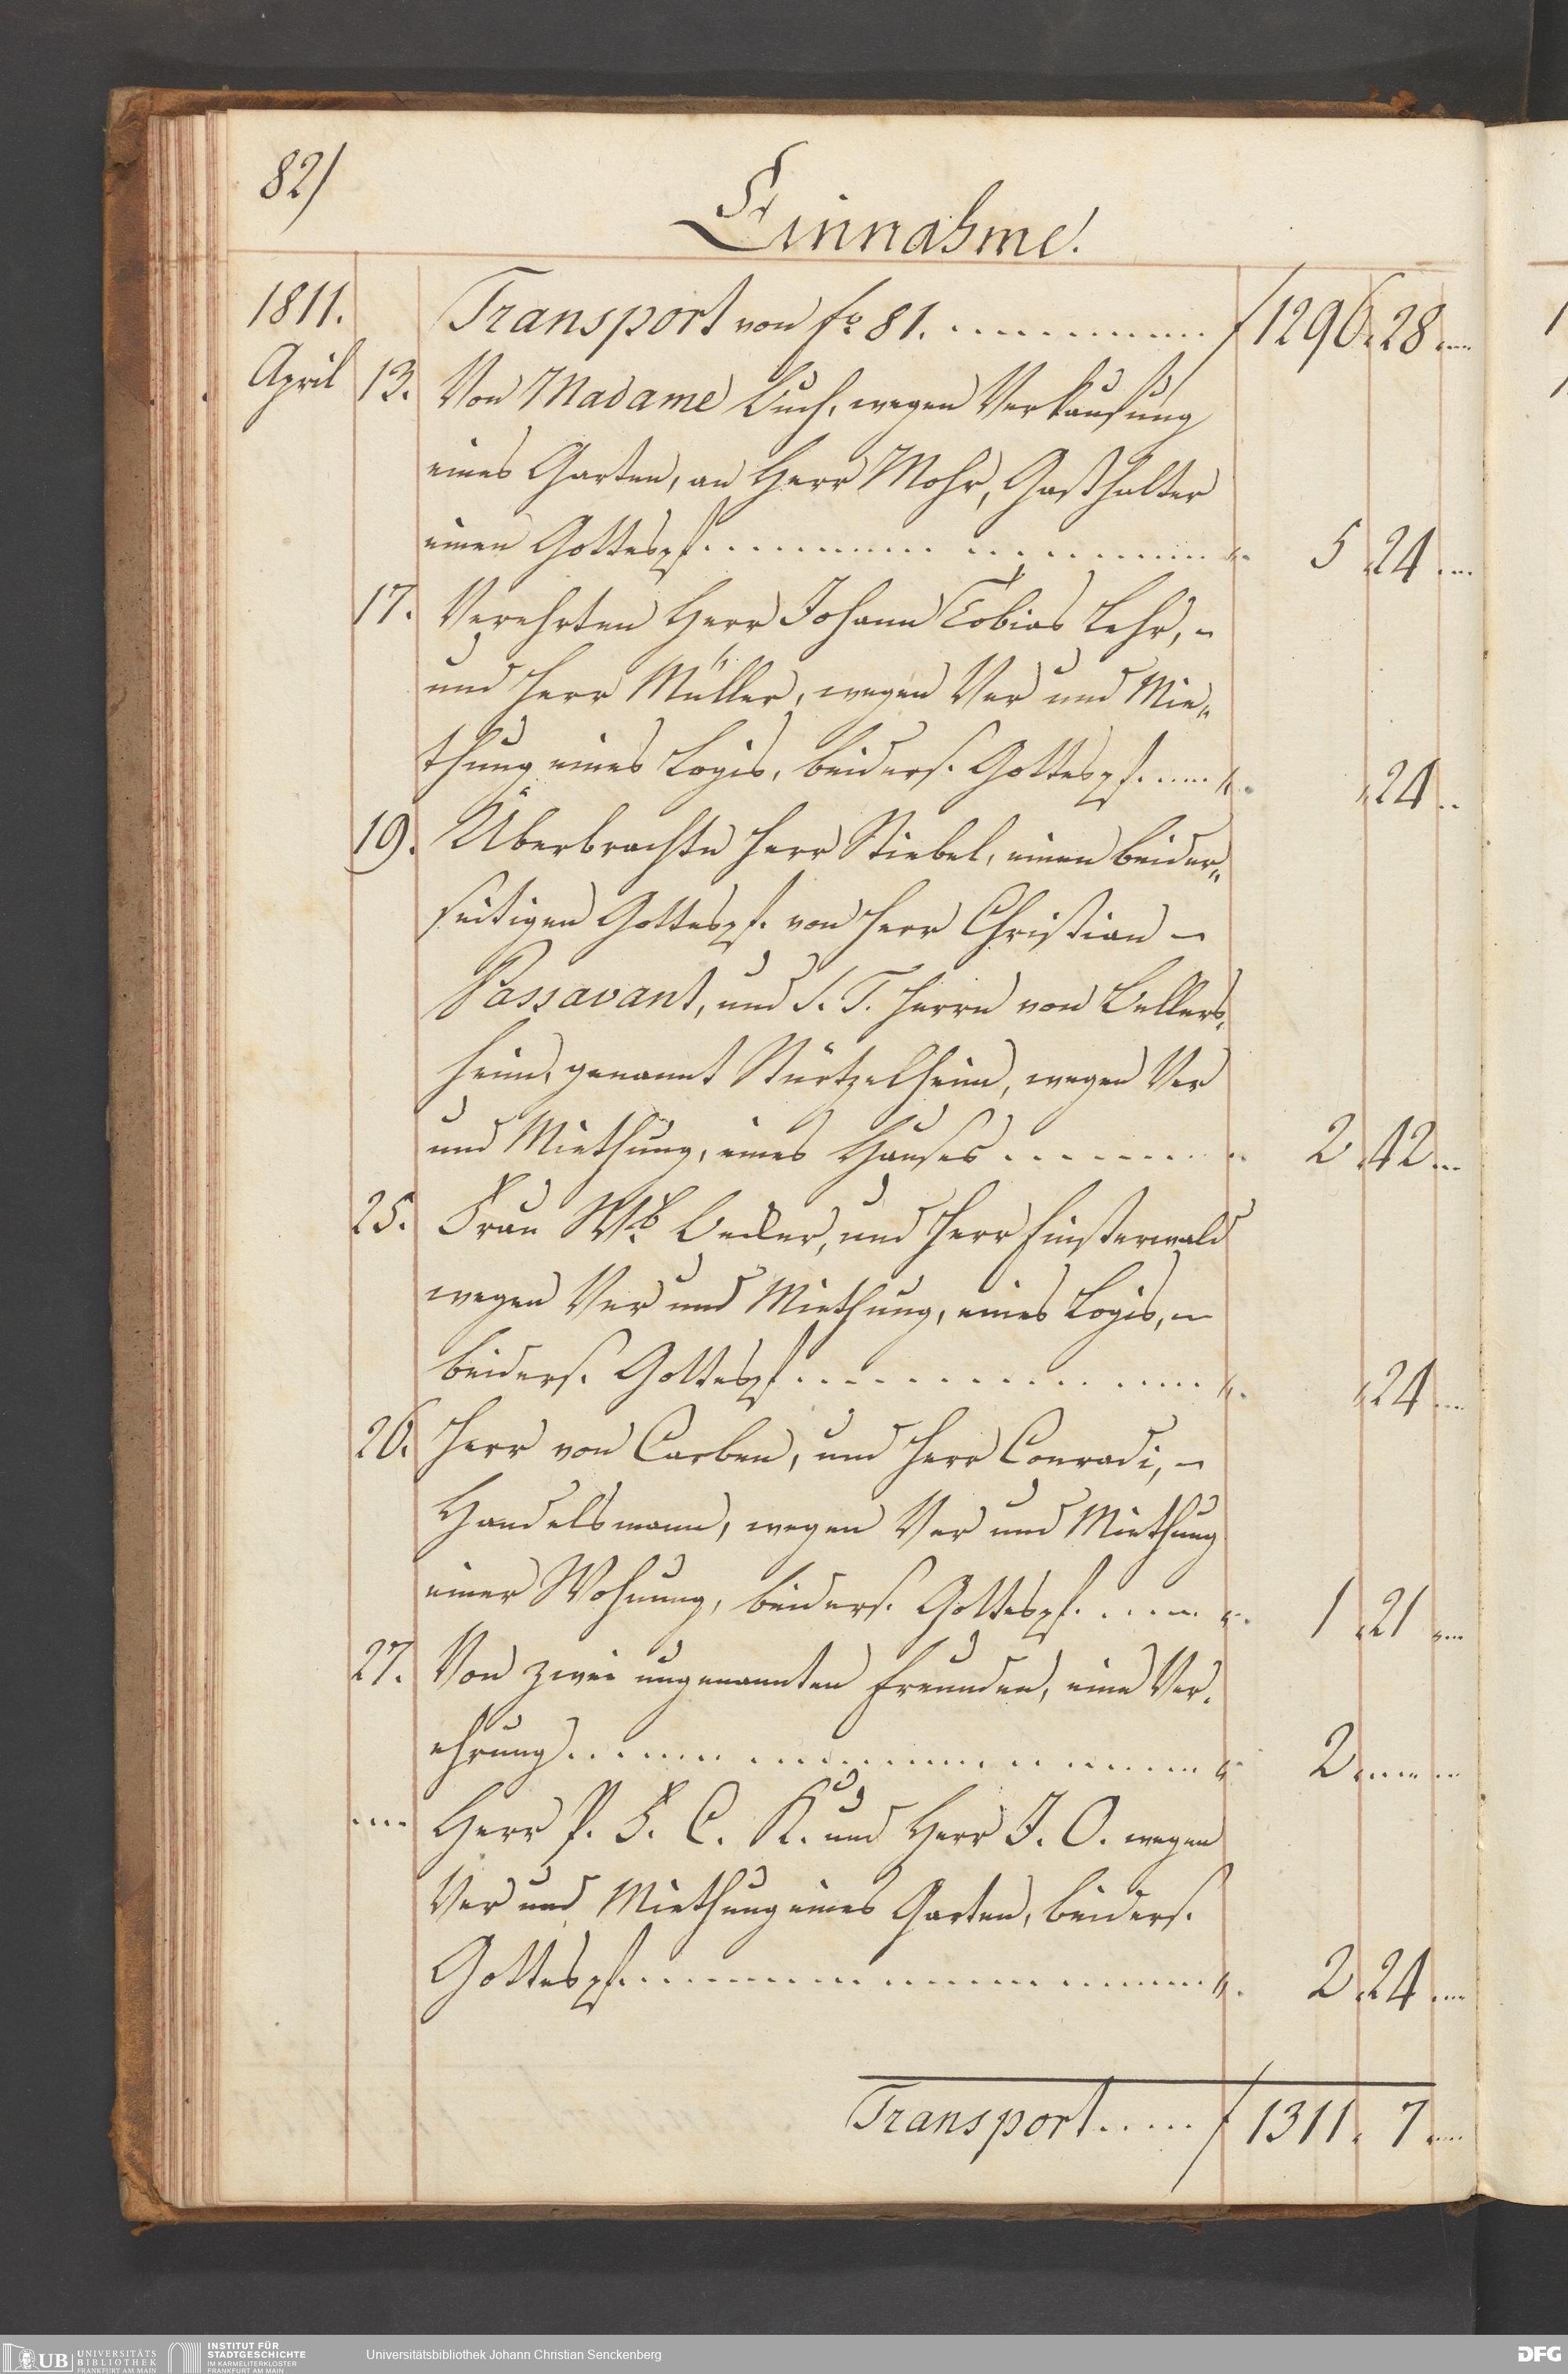 82)
Einnahme.
1811. Transport von fo 81. .......... f 1296. 28 ....
April 13. Von Madame Buch, wegen Verkaufung
eines Garten, an Herr Mohr, Gasthalter
einen Gottespf. .......... 5 24 ....
17. Verehrten Herr Johann Tobias Lehr, -
und Herr Müller, wegen Ver und Mie„
thung eines Logis, beiders. Gottespf. ..... 24 ..
19. Überbrachte Herr Stiebel, einen beider„
seitigen Gottespf. von Herr Christian -
Passavant, und S. T. Herrn von Bellers„
heim, genannt Stürtzelheim, wegen Ver
und Miethung, eines Hauses .......... 2 42 ...
25. Frau Wb. und Herr Finsterwald
wegen Ver und Miethung, eines Logis, -
beiders. Gottespf. .......... 24 ....
26. Herr von Carben, und Herr Conradi, -
Handelsmann, wegen Ver und Miethung
einer Wohnung, beiders. Gottespf. ...... 1 21 ....
27. Von zwei ungenannten Freunden, eine Ver„
ehrung .......... 2 ......
.... Herr P. F. C. K. und Herr J. O. wegen
Ver und Miethung eines Garten, beiders.
Gottespf. .......... 2 24 ....
Transport ..... f 1311. 7 ....
UB UNIVERSITÄTS
BIBLIOTHEK
FRANKFURT AM MAIN
INSTITUT FÜR
STADTGESCHICHTE
IM KARMELITERKLOSTER
FRANKFURT AM MAIN
Universitätsbibliothek Johann Christian Senckenberg
DFG